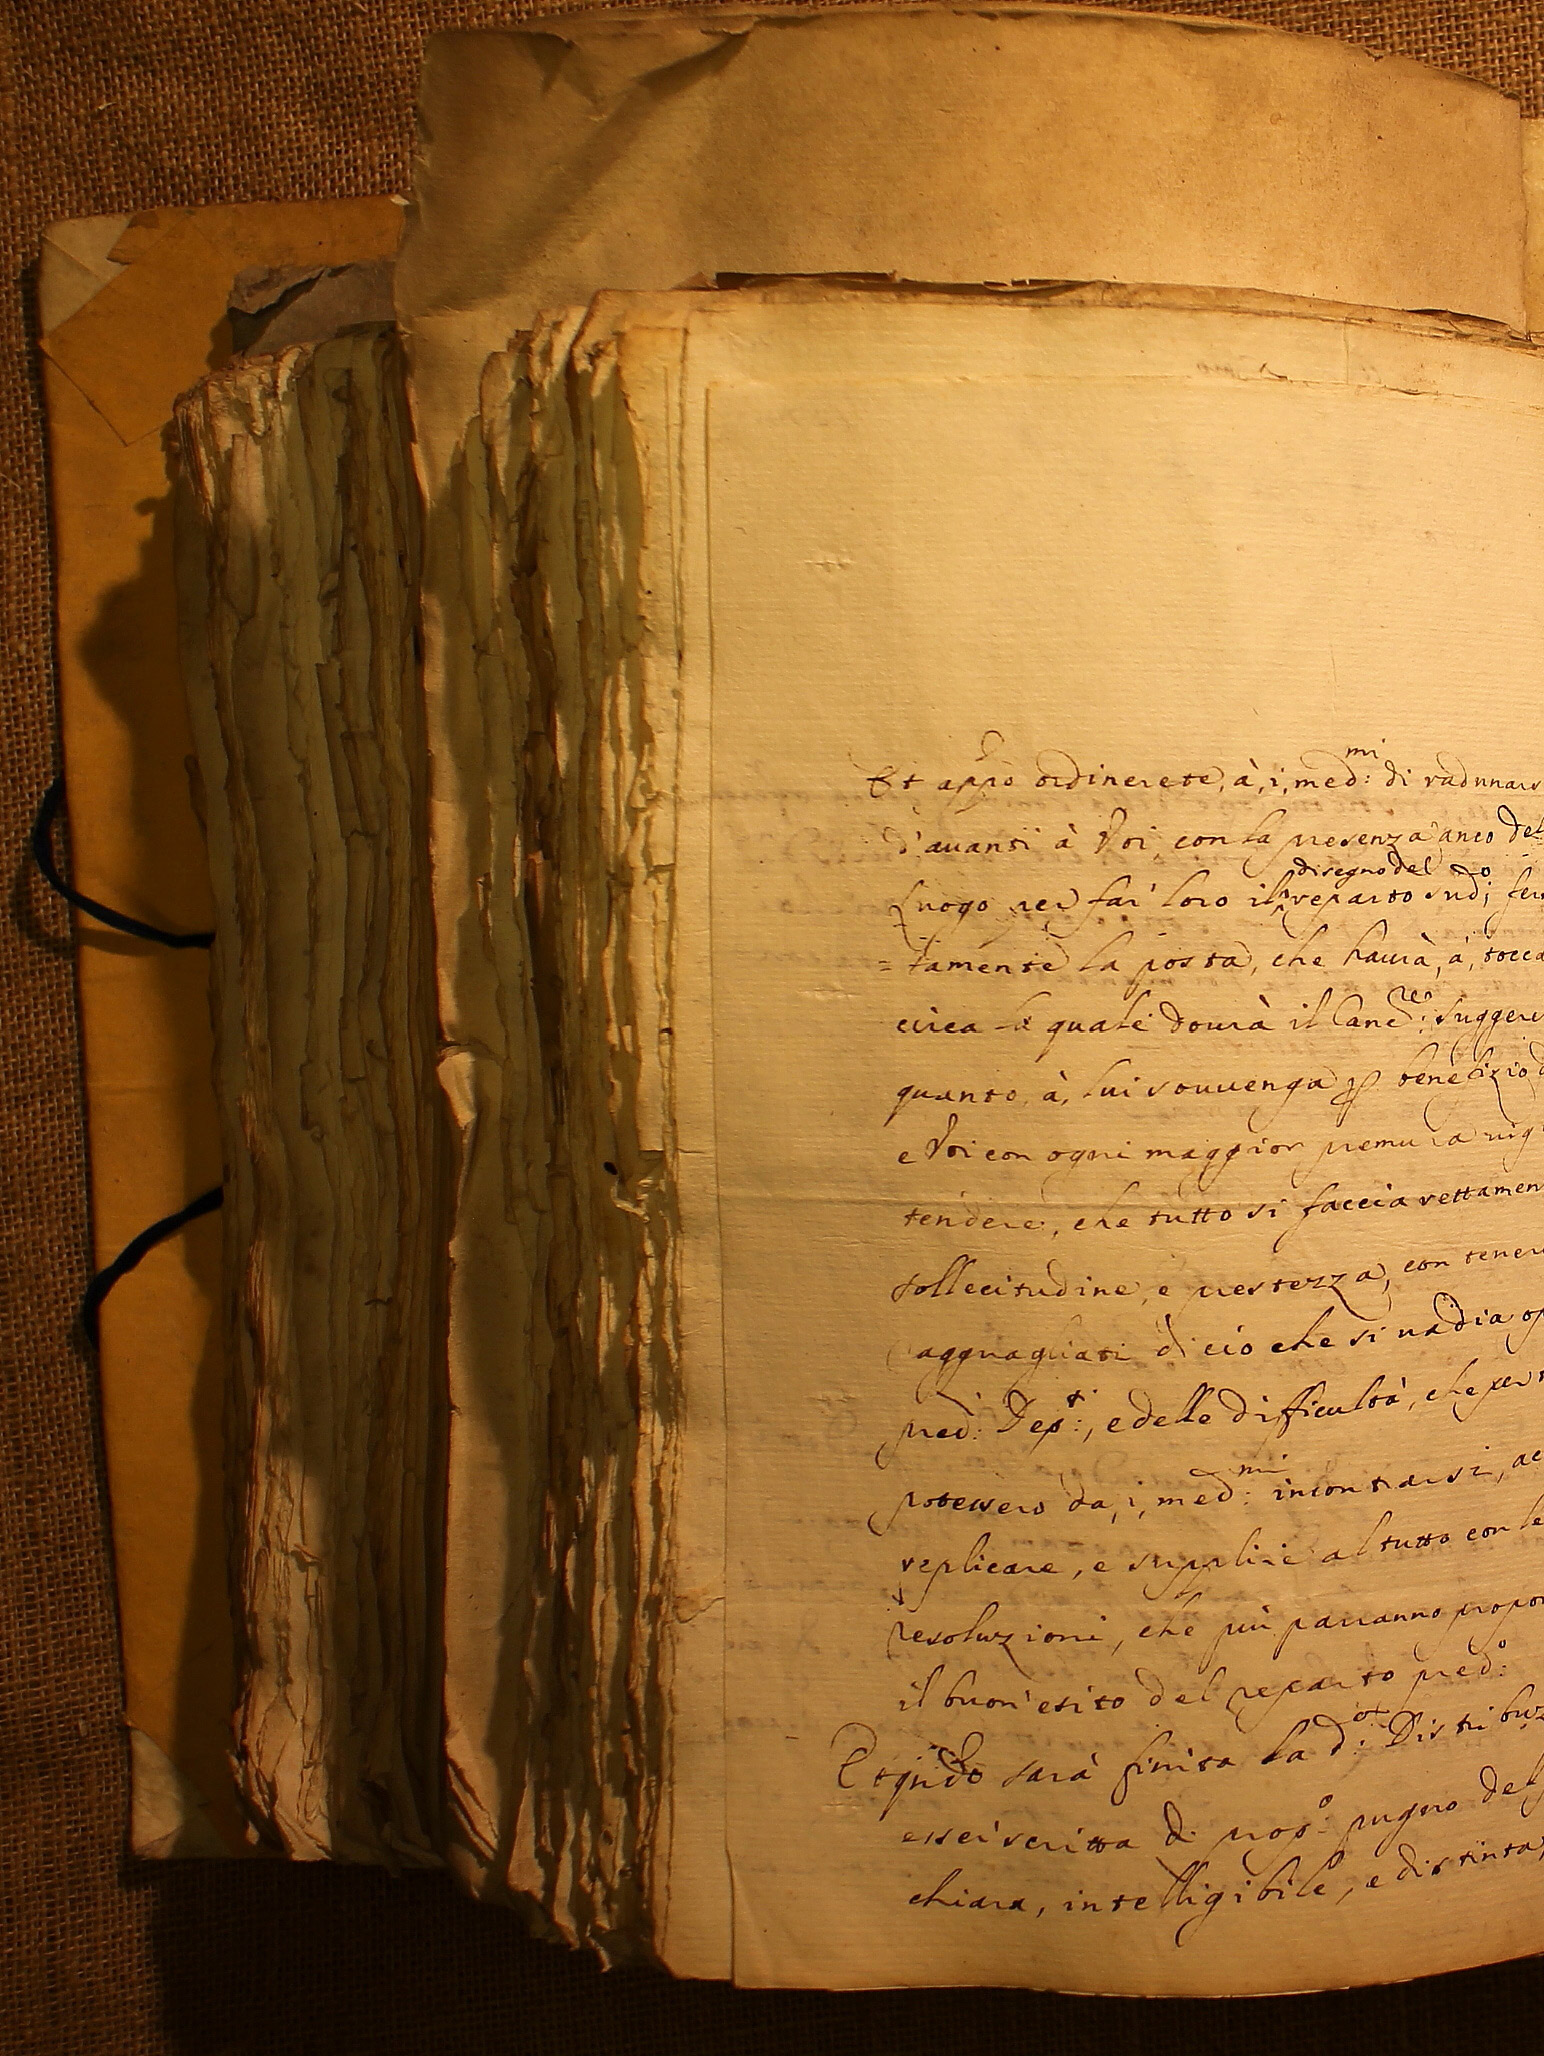 Et app.o ordinerete, à, i, med:mi di radunars
d'auanti à Voi, con la presenza anco del
Luogo per far loro il disegno del reparto sud:o
=tamente la posta, che haurà, à, tocca
circa la quale dourà il Canc:re suggere
quanto, à, lui souuenga benefizio
e Voi con ogni maggior premura
tendere, che tutto si faccia rettamen
sollecitudine, e prestezza, con tener
agguagliati di ciò che si uadia op
pred: Dep:ti, e delle difficultà, che per
potessero da, i, med:mi incontrarsi, ac
replicare, e supplire al tutto con le
resoluzioni, che più parranno propor
il buon'esito del reparto pred:o
Et qūdo sarà finita la d:a Distribuz
esser scritta di prop:o pugno del
chiara, intelligibile, e distinta,